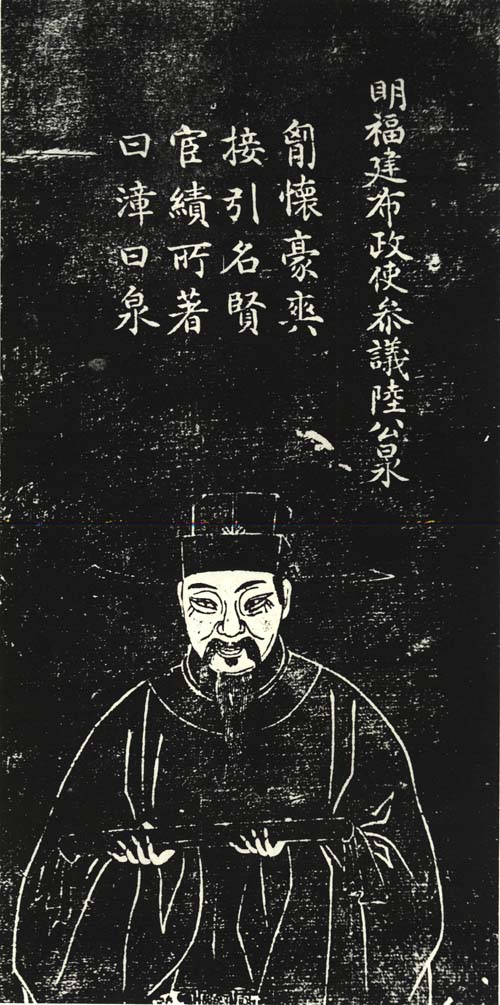 明福建布政使叅議陸公泉
匈懷豪爽
接引名賢
宦績所著
曰漳曰泉